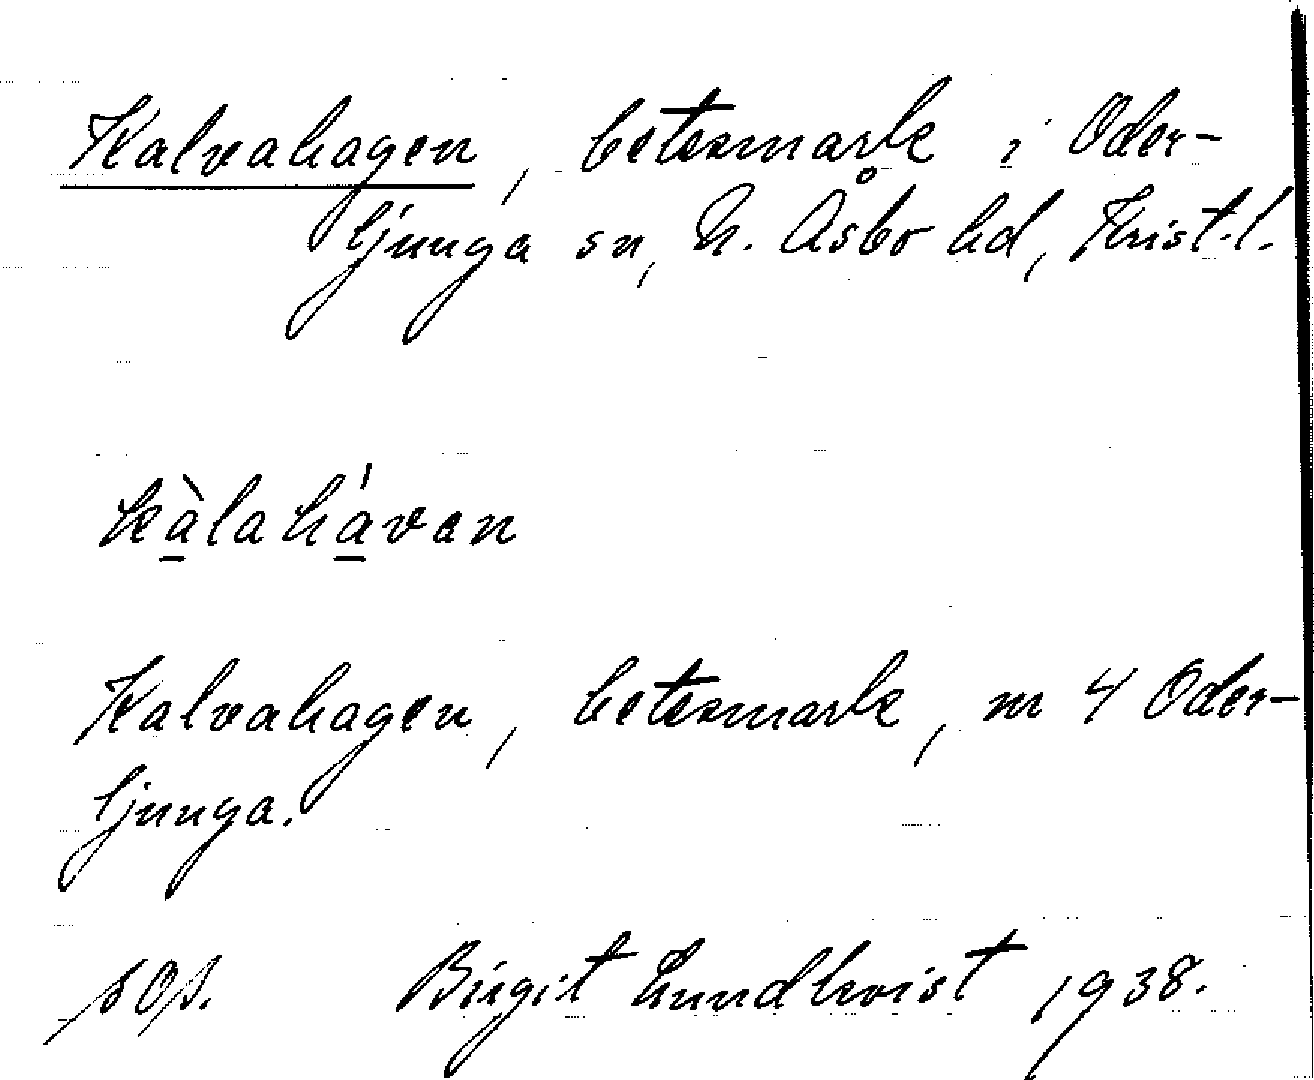 Kalvahagen, betesmark i Oder-
ljunga sn, N. Åsbo hd, Krist.l.
kàlaháven
Kalvahagen, betesmark, nr 4 Oder-
ljunga.
Birgit Lundkvist 1938.